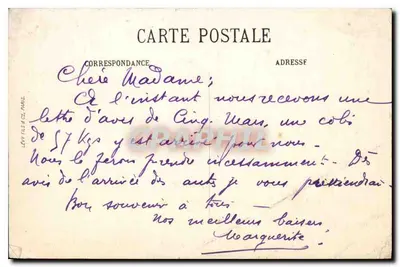 CARTE POSTALE
CORRESPONDANCE
ADRESSE
Chère Madame;
A l'instant nous recevons une
lettre d'avis de Cinq-Mars, une colis
de 57 Kgs y est arrivé pour nous.
Nous le ferons prendre incessamment - Dès
avis de l'arrivée des autres je vous préviendrai.
Bon souvenir à tous -
Nos meilleurs baisers
Marguerite!
LEVY FILS & Cie, PARIS.